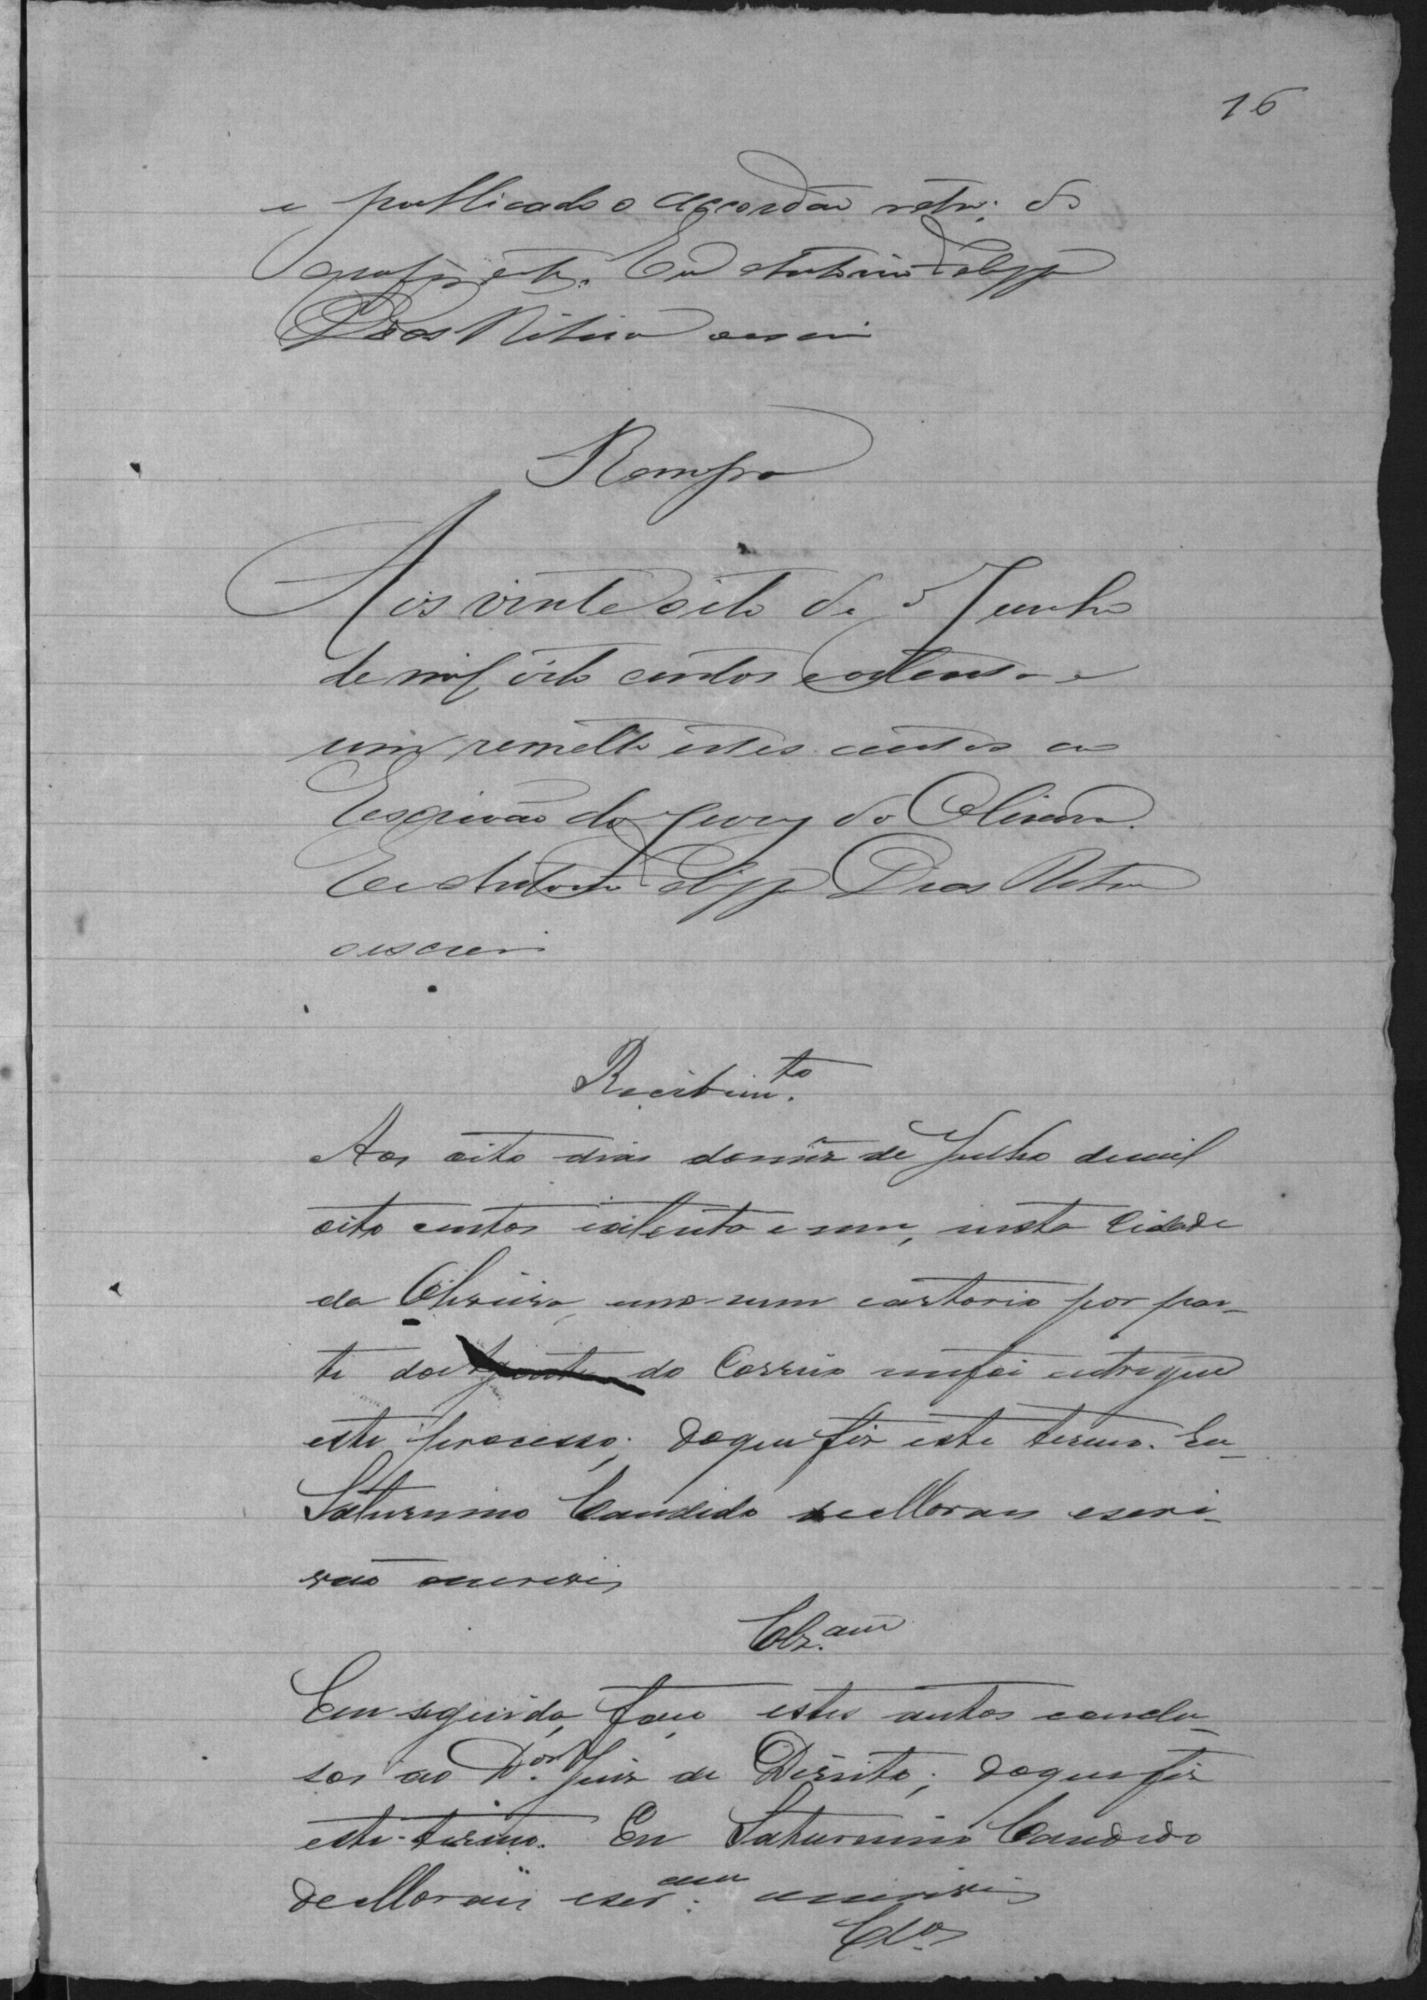 16
e publicado o accordão retro; do
que fiz este. Eu Antonio Felippe
Dias Ribeiro escrevi
Remessa
Aos vinte oito de Junho
de mil oito centos e oitenta e
um remetto estes autos ao
Escrivão do Jury do Oliveira.
Eu Antonio Felippe Dias Ribeiro
o escrevi
Recebim.to
Aos oito dias do mez de Julho de mil
oito centos e oitenta e um, nesta Cidade
da Oliveira, em o meu cartorio por par-
te do Agente do Correio me foi entregue
este processo; do que fiz este termo. Eu
Saturnino Candido de Moraes escri-
vão o escrevi
Clz.am
Em seguida, faço estes autos conclu-
sos ao D.or Juiz de Direito; do que fiz
este termo. Eu Saturnino Candido
de Moraes escr.am o escrevi
Cl.os